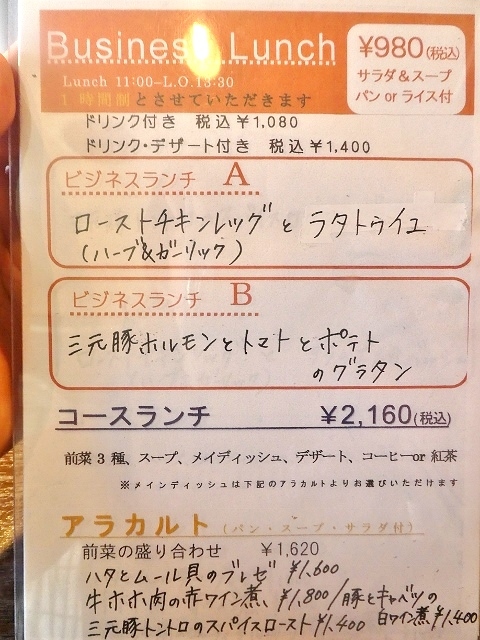 Business Lunch
¥980(税込)
サラダ&スープ
パン or ライス付
Lunch 11:00-L.O.13:30
1時間制とさせていただきます
ドリンク付き 税込¥1,080
ドリンク・デザート付き 税込¥1,400
ビジネスランチ A
ローストチキンレッグと ラタトゥイユ
(ハーブ&ガーリック)
ビジネスランチ B
三元豚ホルモンとトマトとポテト
のグラタン
コースランチ ¥2,160(税込)
前菜3種、スープ、メイディッシュ、デザート、コーヒーor 紅茶
※メインディッシュは下記のアラカルトよりお選びいただけます
アラカルト(パン・スープ・サラダ付)
前菜の盛り合わせ ¥1,620
ハタとムール貝のブレゼ ¥1,600
牛ホホ肉の赤ワイン煮、¥1,800/豚とキャベツの
白ワイン煮¥1,400
三元豚トントロのスパイスロースト¥1,400